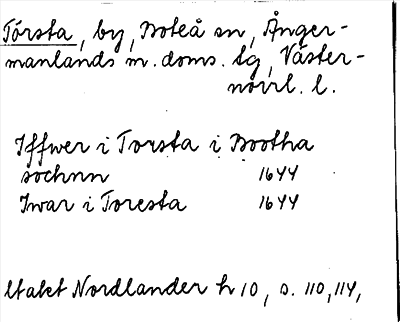 Torsta, by, Boteå sn, Ånger-
manlands m. doms. tg, Väster-
norrl. l.
Iffwer i Torsta i Bootha
sochnn 1644
Iwar i Toresta 1644
ltakt Nordlander h 10, s. 110, 114,